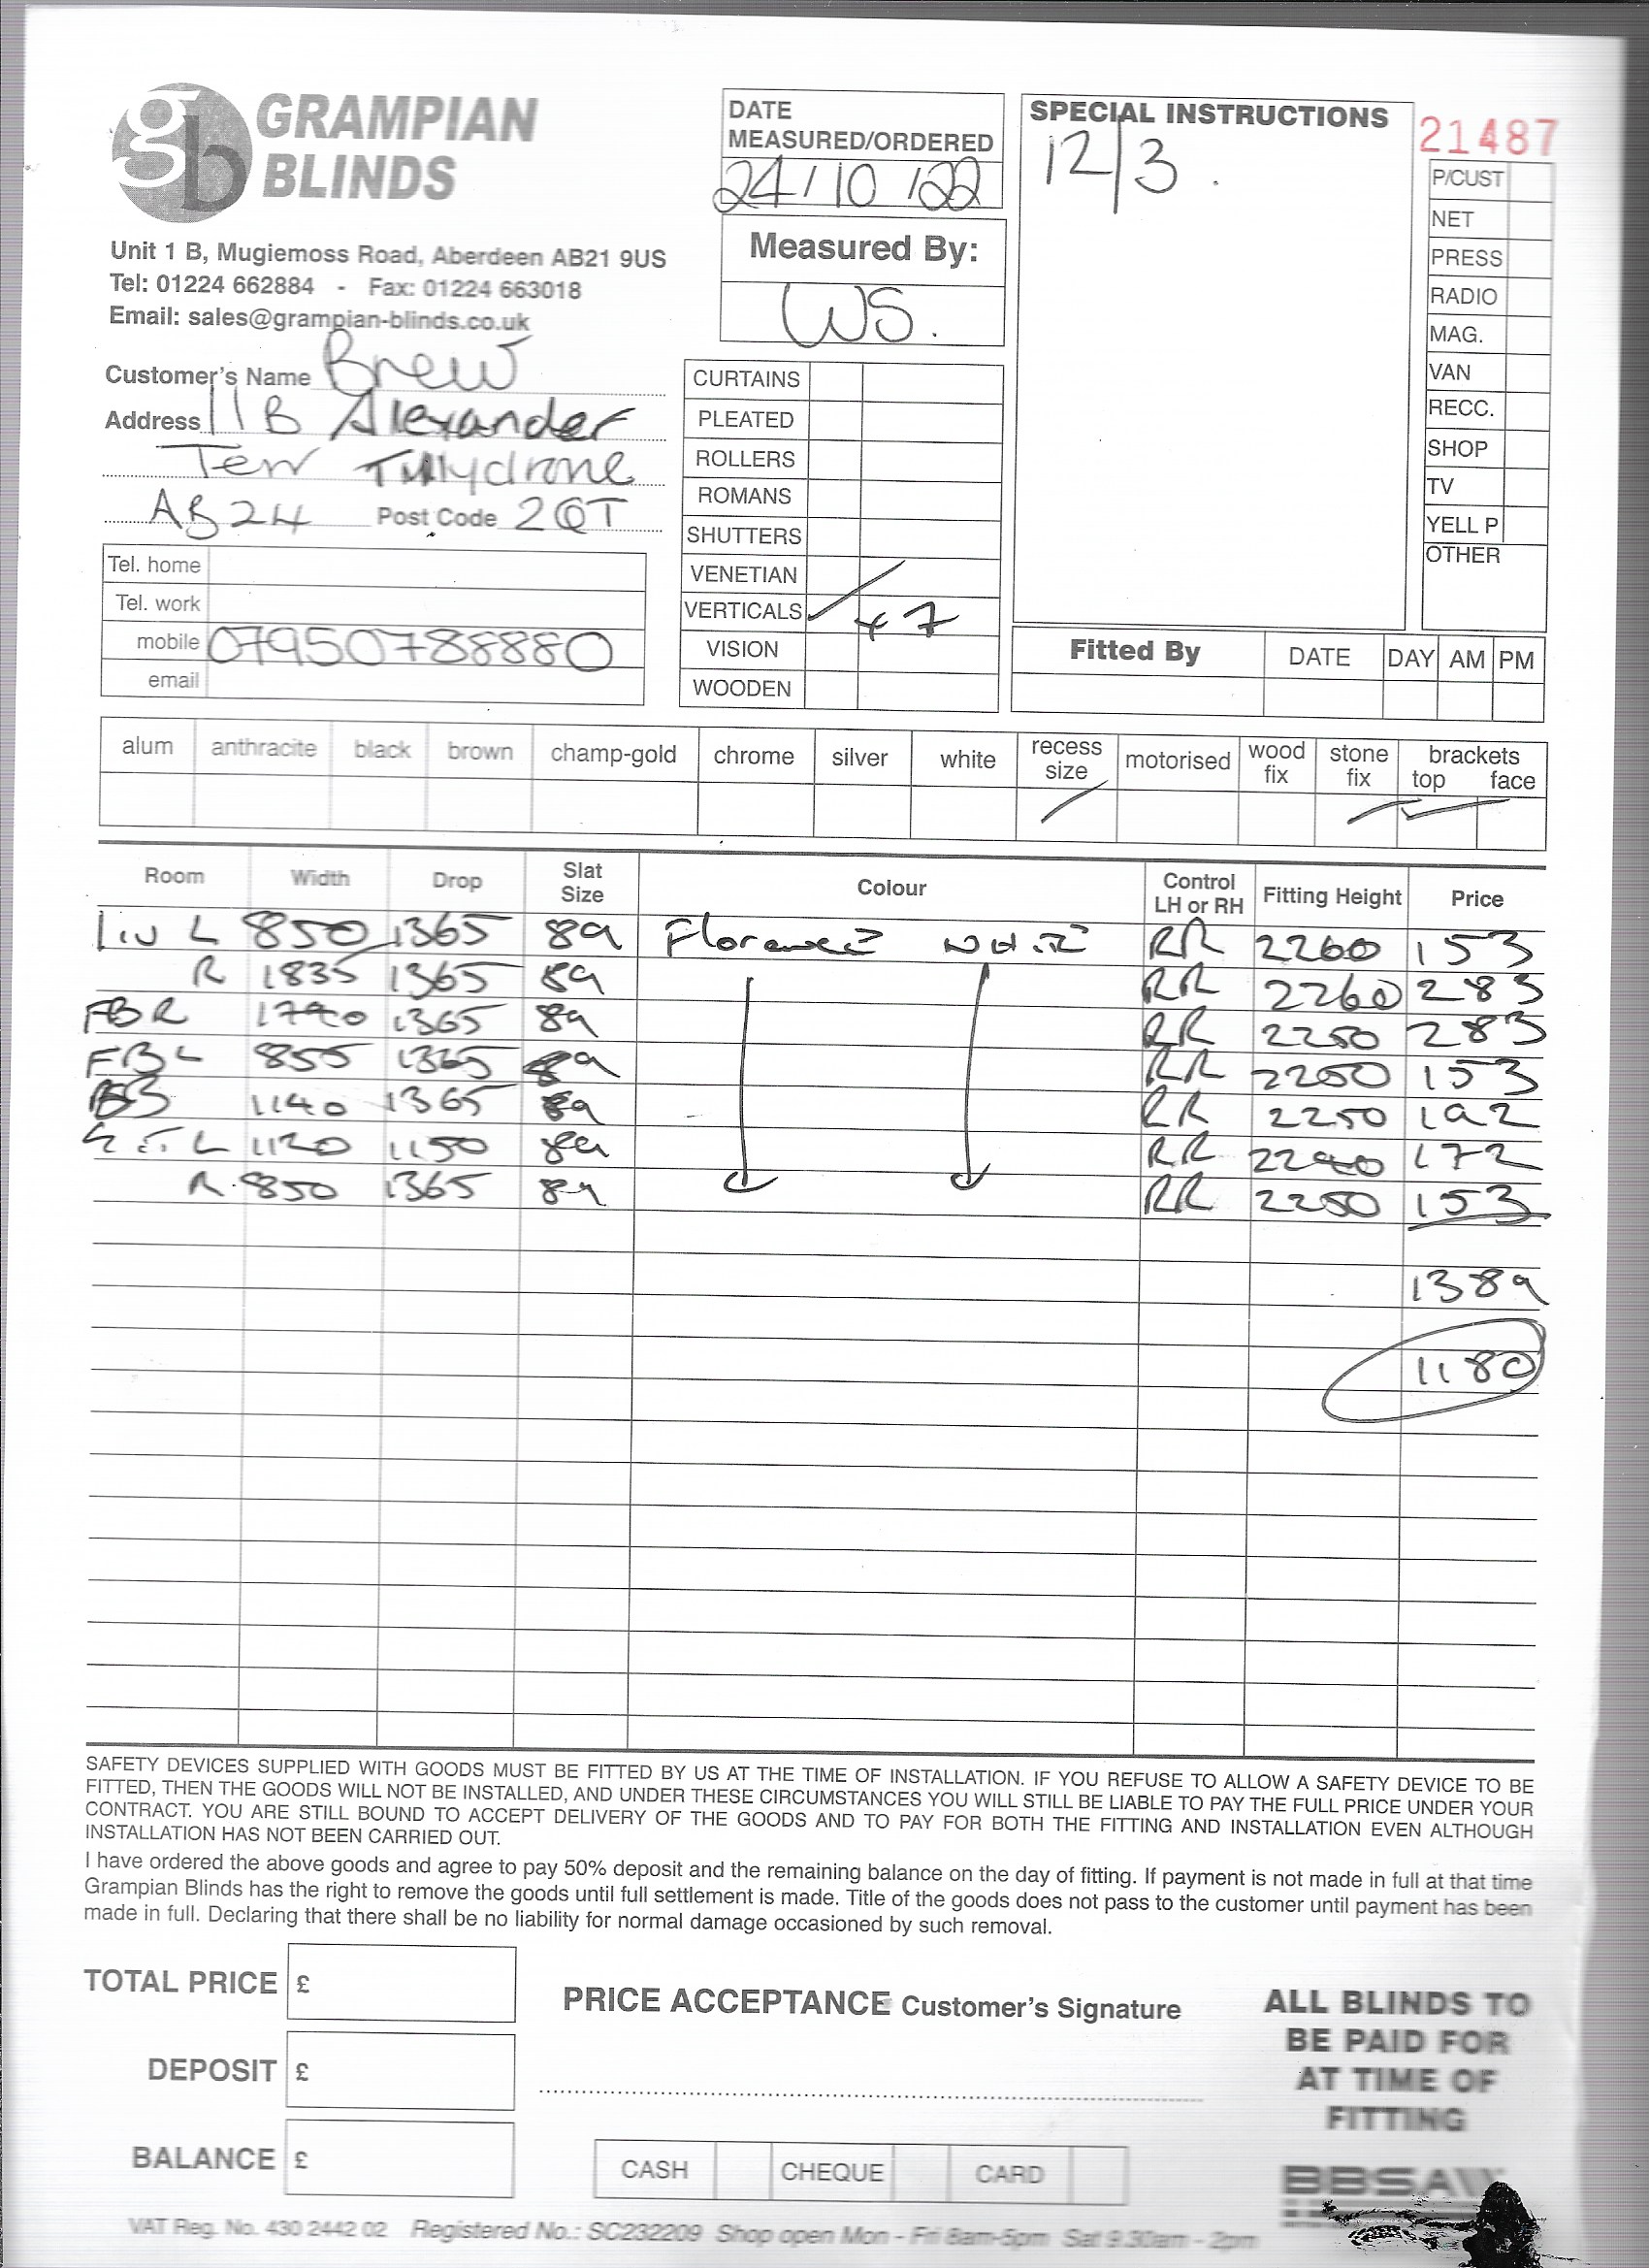 gb GRAMPIAN
BLINDS
Unit 1 B, Mugiemoss Road, Aberdeen AB21 9US
Tel: 01224 662884 - Fax: 01224 663018
Email: sales@grampian-blinds.co.uk
Customer's Name Brew
Address 11B Alexander
Terr Tillydrone
AB24 Post Code 2QT
Tel. home
Tel. work
mobile 07950788880
email
DATE
MEASURED/ORDERED
24/10/22
Measured By:
WS.
CURTAINS
PLEATED
ROLLERS
ROMANS
SHUTTERS
VENETIAN
VERTICALS
VISION
WOODEN
SPECIAL INSTRUCTIONS
12/3.
21487
P/CUST
NET
PRESS
RADIO
MAG.
VAN
RECC.
SHOP
TV
YELL P
OTHER
Fitted By DATE DAY AM PM
alum anthracite black brown champ-gold chrome silver white recess size motorised wood fix stone fix brackets top face
Room Width Drop Slat Size Colour Control LH or RH Fitting Height Price
Liv L 850 1365 89 Florence WHITE RR 2260 153
R 1835 1365 89 RR 2260 283
FBR 1365 89 RR 2250 283
FBL 855 1365 89 RR 2250 153
1140 1365 89 RR 2250 192
1120 1150 89 RR 172
R. 850 1365 89 RR 2250 153
1389
1180
SAFETY DEVICES SUPPLIED WITH GOODS MUST BE FITTED BY US AT THE TIME OF INSTALLATION. IF YOU REFUSE TO ALLOW A SAFETY DEVICE TO BE
FITTED, THEN THE GOODS WILL NOT BE INSTALLED, AND UNDER THESE CIRCUMSTANCES YOU WILL STILL BE LIABLE TO PAY THE FULL PRICE UNDER YOUR
CONTRACT. YOU ARE STILL BOUND TO ACCEPT DELIVERY OF THE GOODS AND TO PAY FOR BOTH THE FITTING AND INSTALLATION EVEN ALTHOUGH
INSTALLATION HAS NOT BEEN CARRIED OUT.
I have ordered the above goods and agree to pay 50% deposit and the remaining balance on the day of fitting. If payment is not made in full at that time
Grampian Blinds has the right to remove the goods until full settlement is made. Title of the goods does not pass to the customer until payment has been
made in full. Declaring that there shall be no liability for normal damage occasioned by such removal.
TOTAL PRICE £
DEPOSIT £
BALANCE £
PRICE ACCEPTANCE Customer's Signature
CASH CHEQUE CARD
ALL BLINDS TO
BE PAID FOR
AT TIME OF
FITTING
BBSA
VAT Reg. No. 430 2442 02 Registered No.: SC232209 Shop open Mon - Fri 8am-5pm Sat 9.30am - 2pm